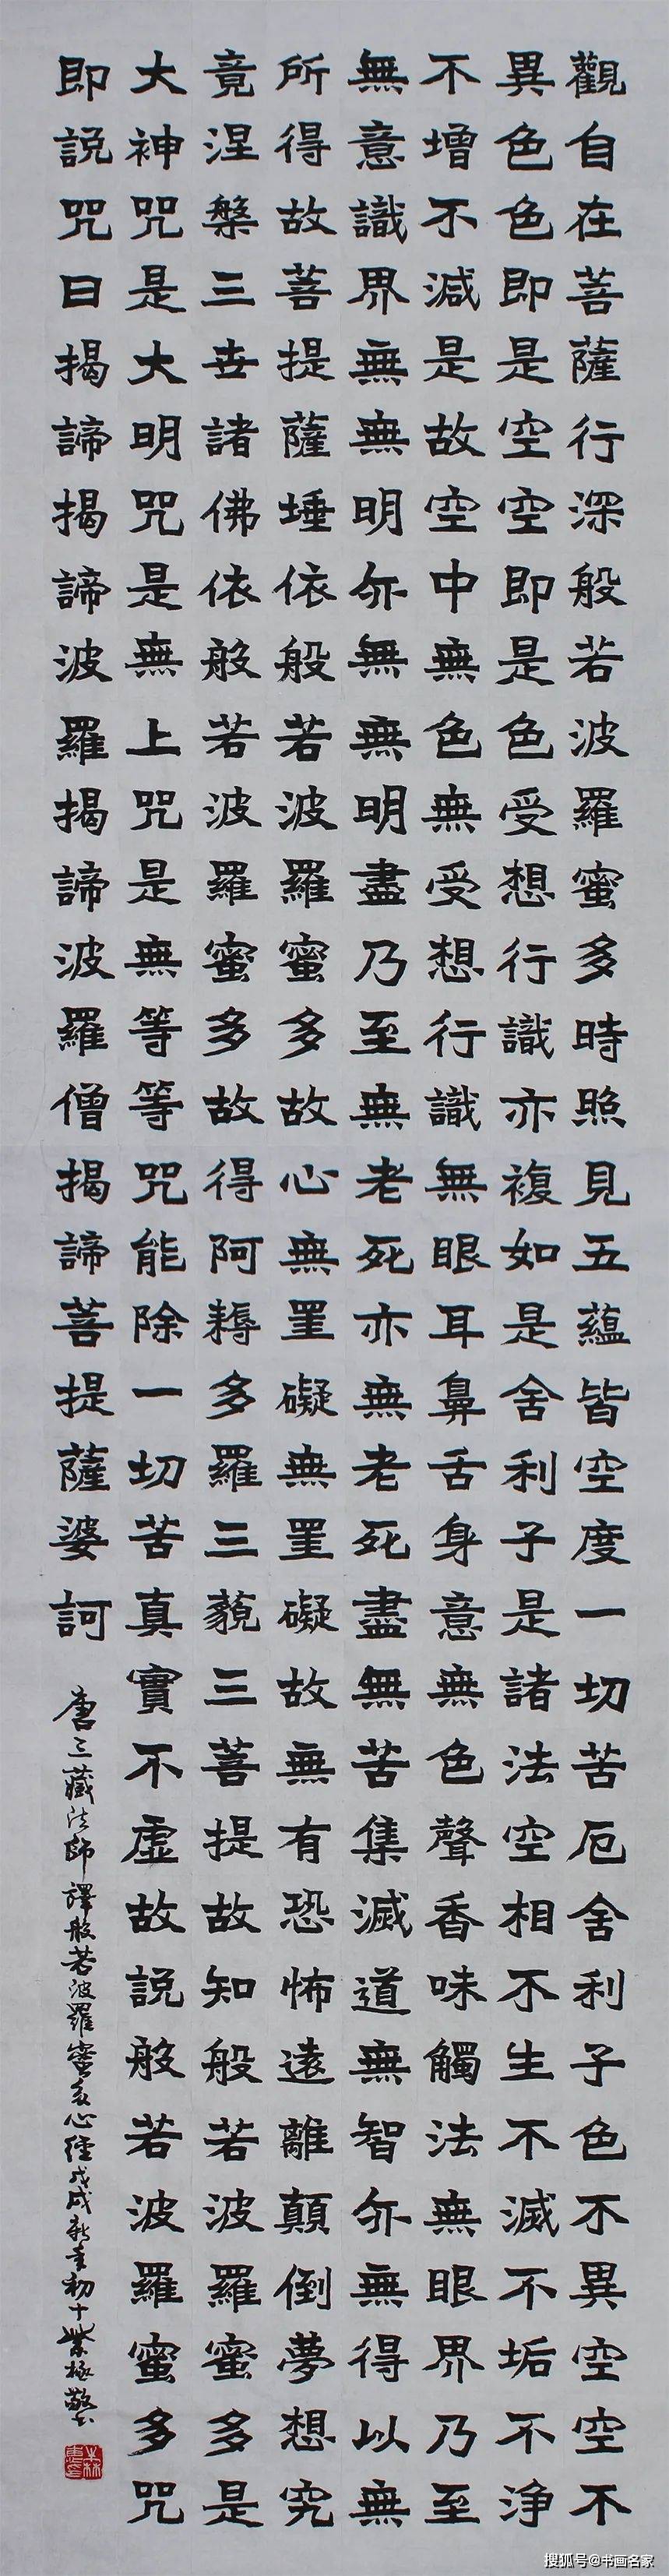 觀自在菩薩行深般若波羅蜜多時照見五蘊皆空度一切苦厄舍利子色不異空空不
異色色即是空空即是色受想行識亦複如是舍利子是諸法空相不生不滅不垢不淨
不增不減是故空中無色無受想行識無眼耳鼻舌身意無色聲香味觸法無眼界乃至
無意識界無無明亦無無明盡乃至無老死亦無老死盡無苦集滅道無智亦無得以無
所得故菩提薩埵依般若波羅蜜多故心無罣礙無罣礙故無有恐怖遠離顛倒夢想究
竟涅槃三世諸佛依般若波羅蜜多故得阿耨多羅三藐三菩提故知般若波羅蜜多是
大神咒是大明咒是無上咒是無等等咒能除一切苦真實不虛故說般若波羅蜜多咒
即說咒曰揭諦揭諦波羅揭諦波羅僧揭諦菩提薩婆訶
唐三藏法師譯般若波羅蜜多心經戊戌新年初十紫極敬書
搜狐号@书画名家